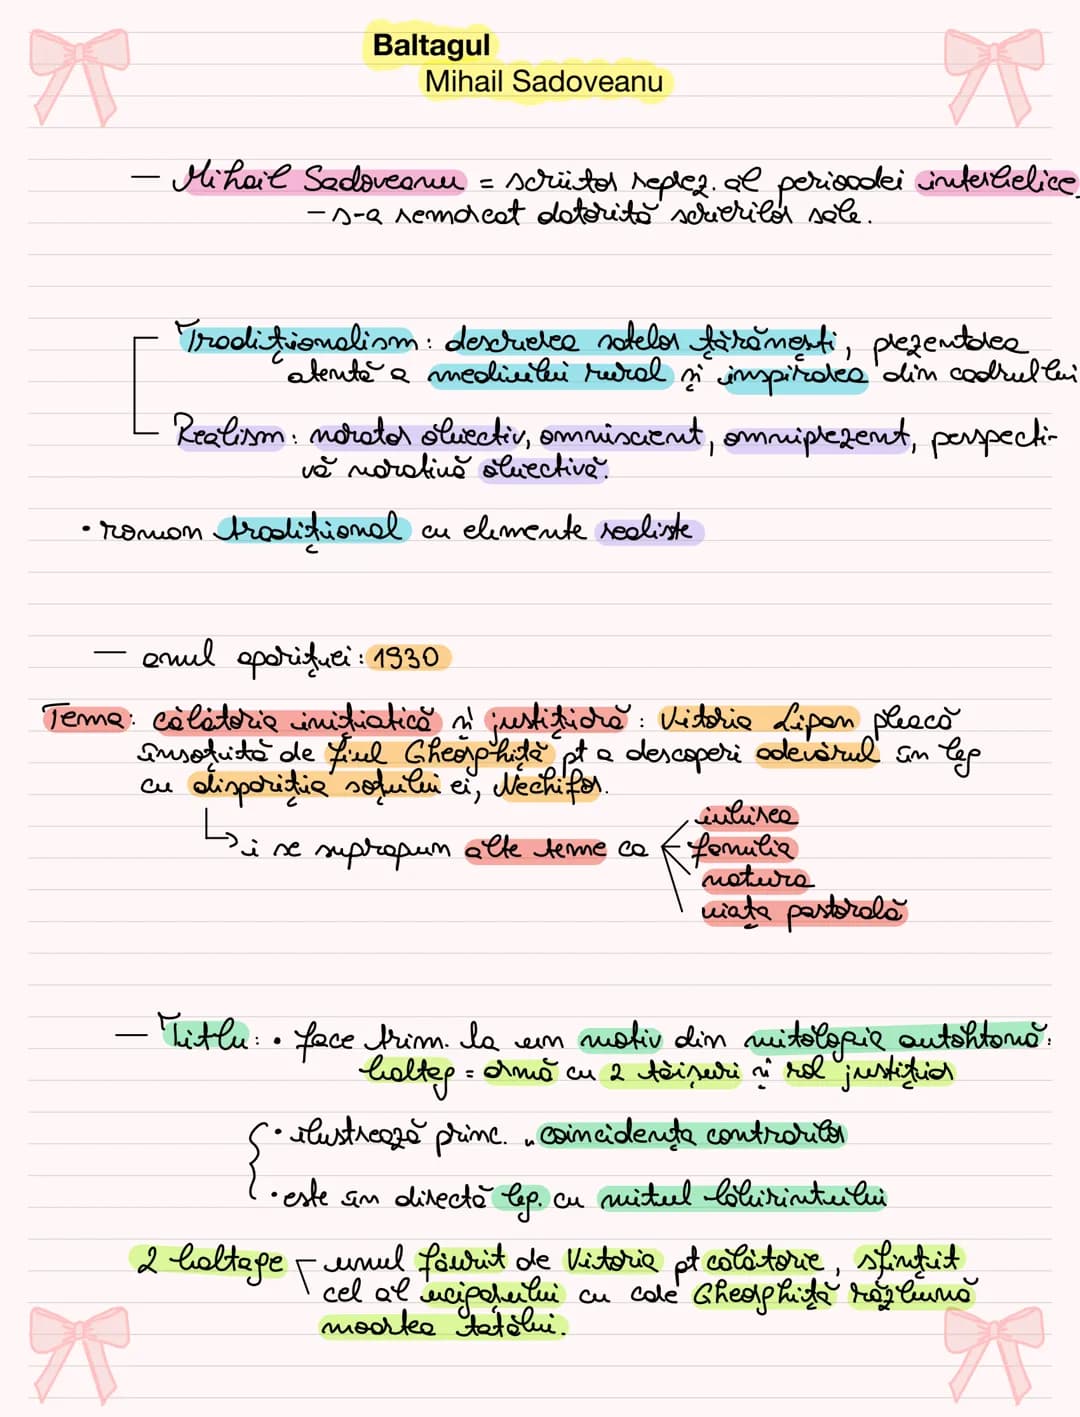 Baltagul
Mihail Sadoveanu
— Mihail Sadoveanu = scriitor reprez. al perioadei interbelice
- s-a remarcat datorită scrierilor sale.
Tradiționalism: descrierea satelor țărănești, prezentarea
atentă a mediului rural și inspirarea din cadrul lui
Realism: narator obiectiv, omniscient, omniprezent, perspecti-
vă narativă obiectivă.
• roman tradițional cu elemente realiste
— anul apariției: 1930
Tema: călătoria inițiatică și justițiară: Vitoria Lipan pleacă
însoțită de fiul Gheorghiță pt a descoperi adevărul în leg
cu dispariția soțului ei, Nechifor.
iubirea
↳ i se suprapun alte teme ca familia
natura
viața pastorală
— Titlu: • face trim. la un motiv din mitologia autohtonă:
baltag = armă cu 2 tăișuri și rol justițiar
• ilustrează princ. „coincidența contrariilor
• este în directă leg. cu mitul labirintului
2 baltage unul făurit de Vitoria pt călătorie, sfințit
cel al ucigașului cu care Gheorghiță răzbună
moartea tatălui.